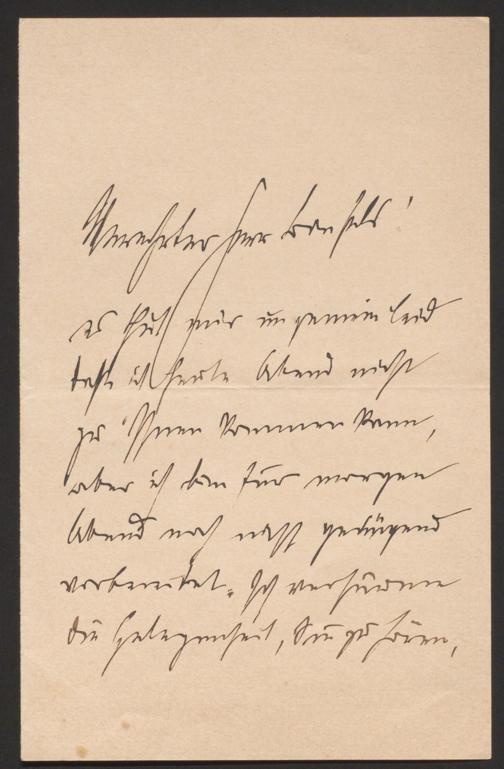 Verehrter Herr Bonsels!
es thut mir ungemein leid
daß ich heute Abend nicht
zu Ihnen kommen kann,
aber ich bin für morgen
Abend noch nicht genügend
vorbereitet. Ich versäume
die Gelegenheit, Sie zu hören,